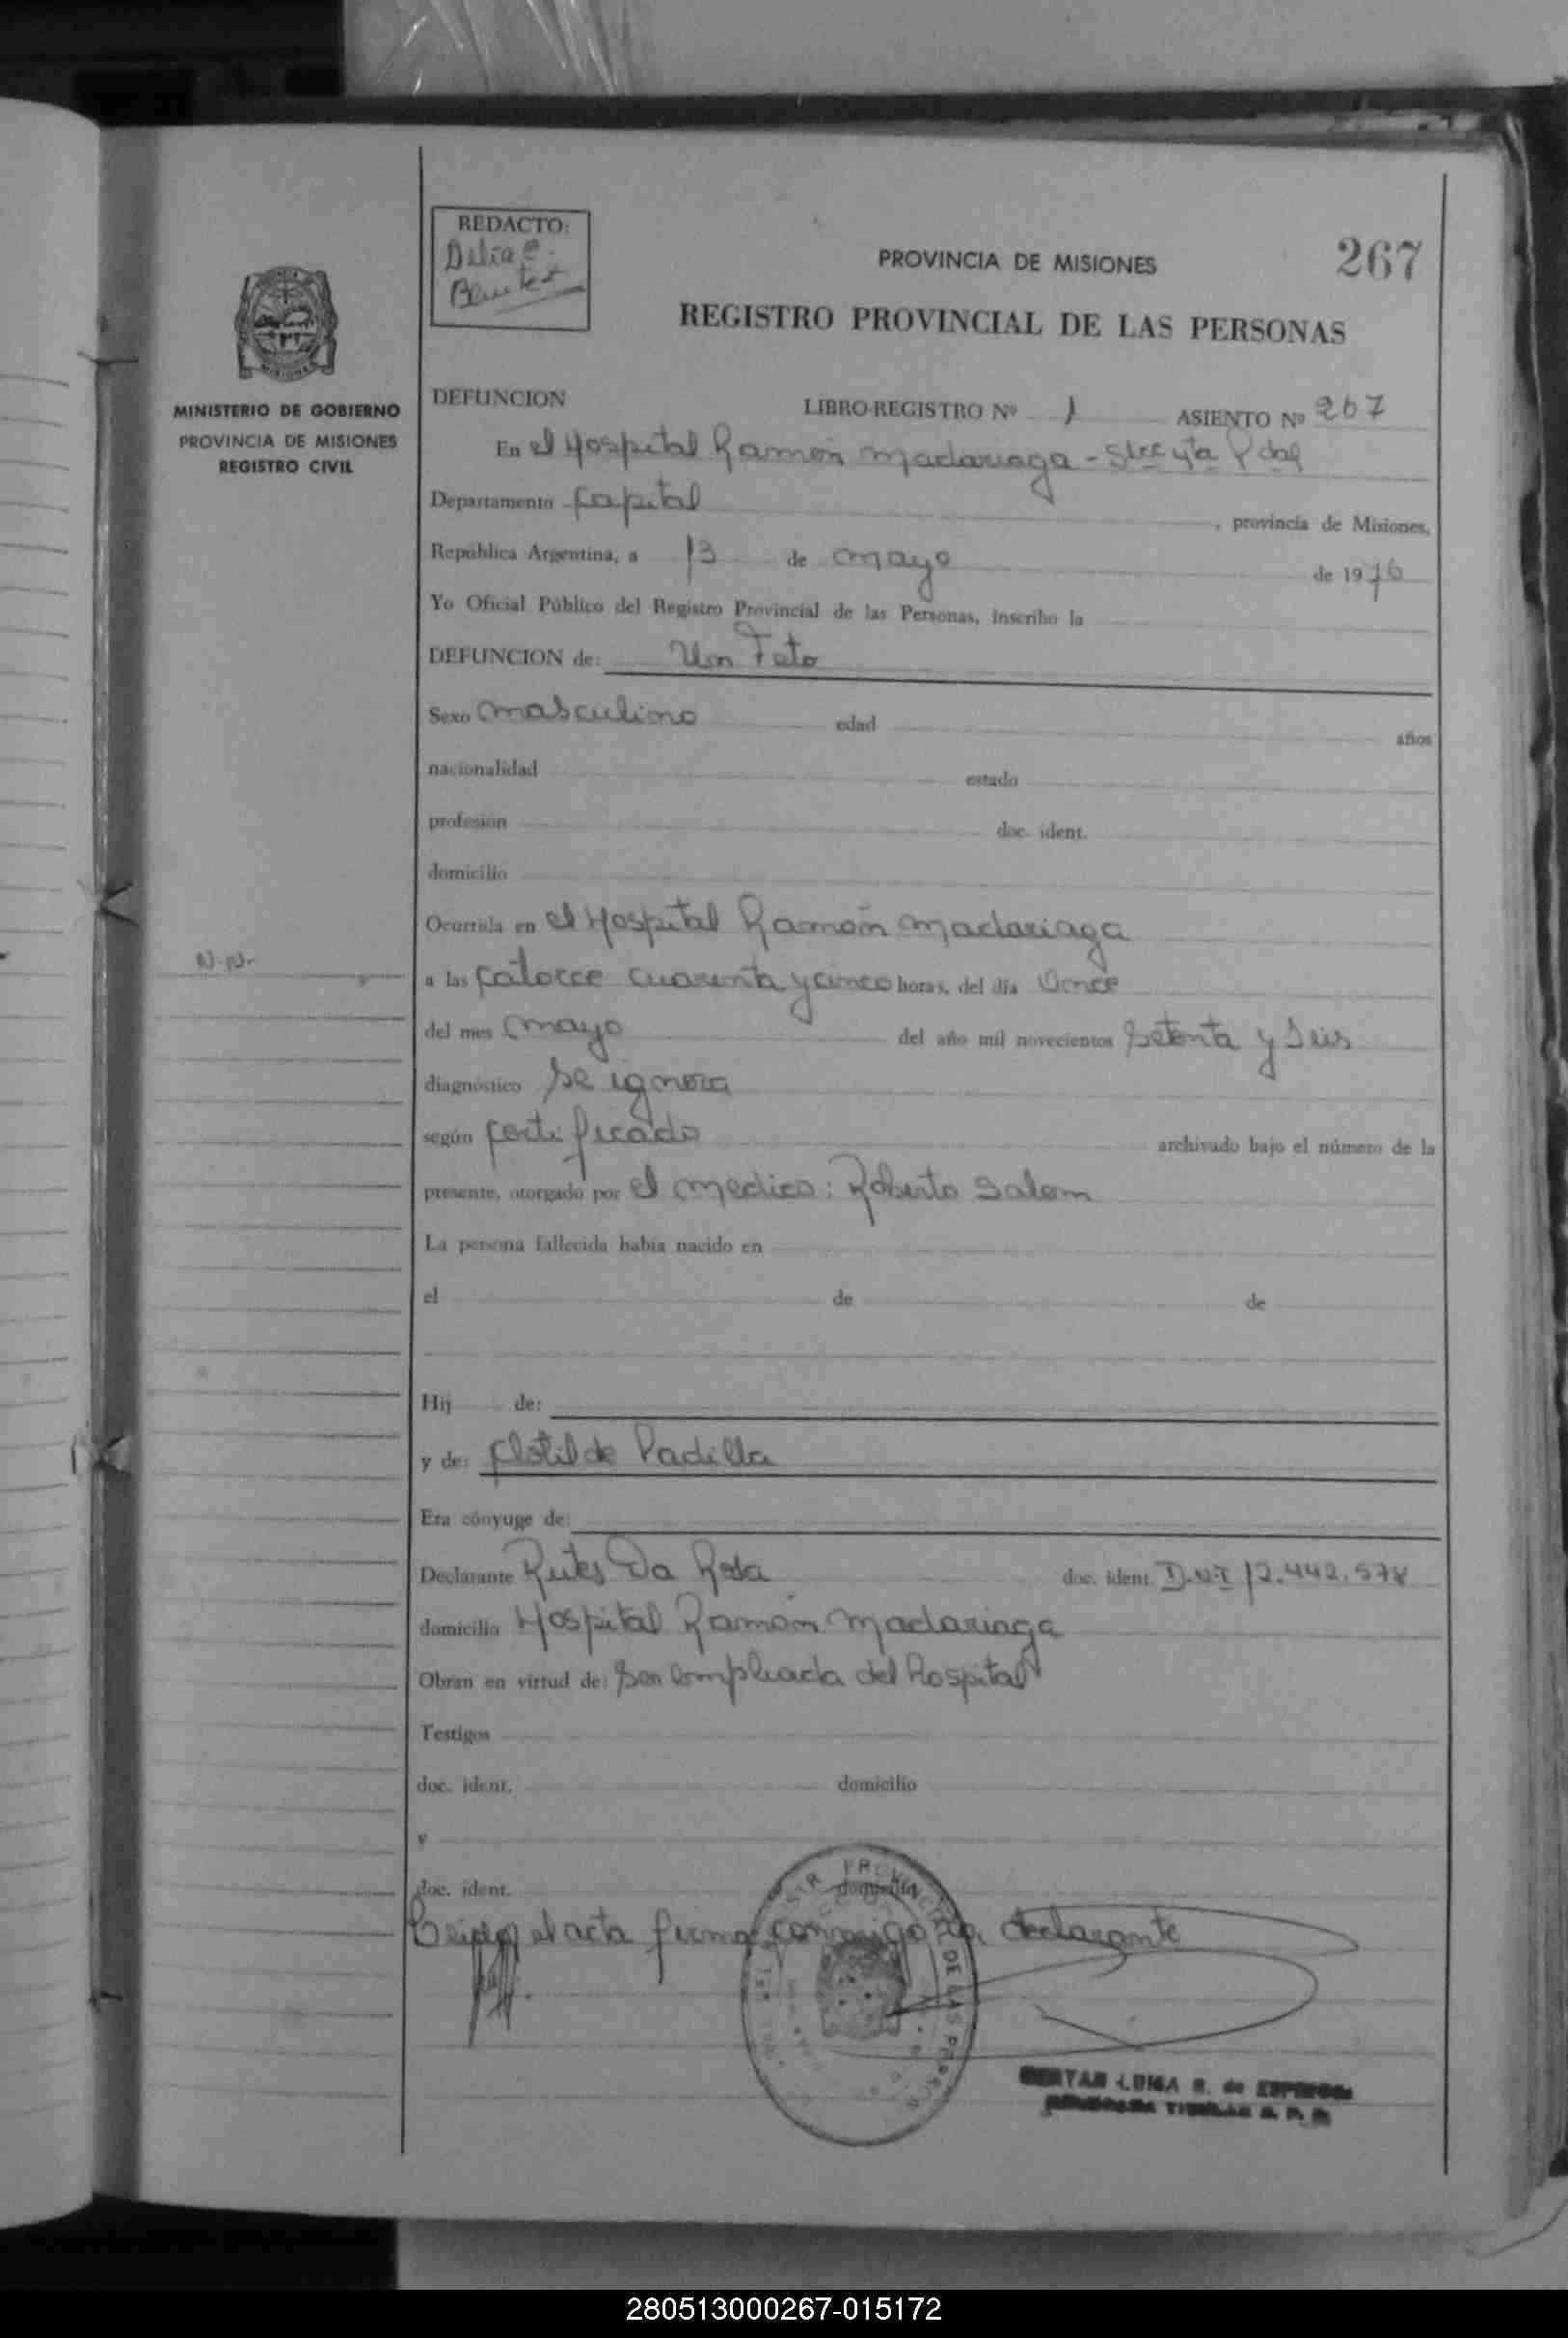 REDACTO:
Delia E.
Benitez
PROVINCIA DE MISIONES
267
REGISTRO PROVINCIAL DE LAS PERSONAS
MINISTERIO DE GOBIERNO
PROVINCIA DE MISIONES
REGISTRO CIVIL
DEFUNCION LIBRO-REGISTRO Nº 1 ASIENTO Nº 267
En el Hospital Ramón Madariaga - 4ta
Departamento Capital , provincia de Misiones,
República Argentina, a 13 de mayo de 1976
Yo Oficial Público del Registro Provincial de las Personas, inscribo la
DEFUNCION de: Un Feto
Sexo masculino edad años
nacionalidad estado
profesión doc. ident.
domicilio
Ocurrida en el Hospital Ramón Madariaga
N.N.
a las catorce cuarenta y cinco horas, del día Once
del mes mayo del año mil novecientos Setenta y Seis
diagnóstico Se ignora
según certificado archivado bajo el número de la
presente, otorgado por el medico: Roberto Salom
La persona fallecida había nacido en
el de de
Hij de:
y de: Clotilde Padilla
Era cónyuge de:
Declarante Da Rosa doc. ident. D.N.I 12.442.578
domicilio Hospital Ramón Madariaga
Obran en virtud de: Ser empleada del hospital
Testigos
doc. ident. domicilio
y
doc. ident. domicilio
el acta firma conmigo la declarante
LUISA de
280513000267-015172